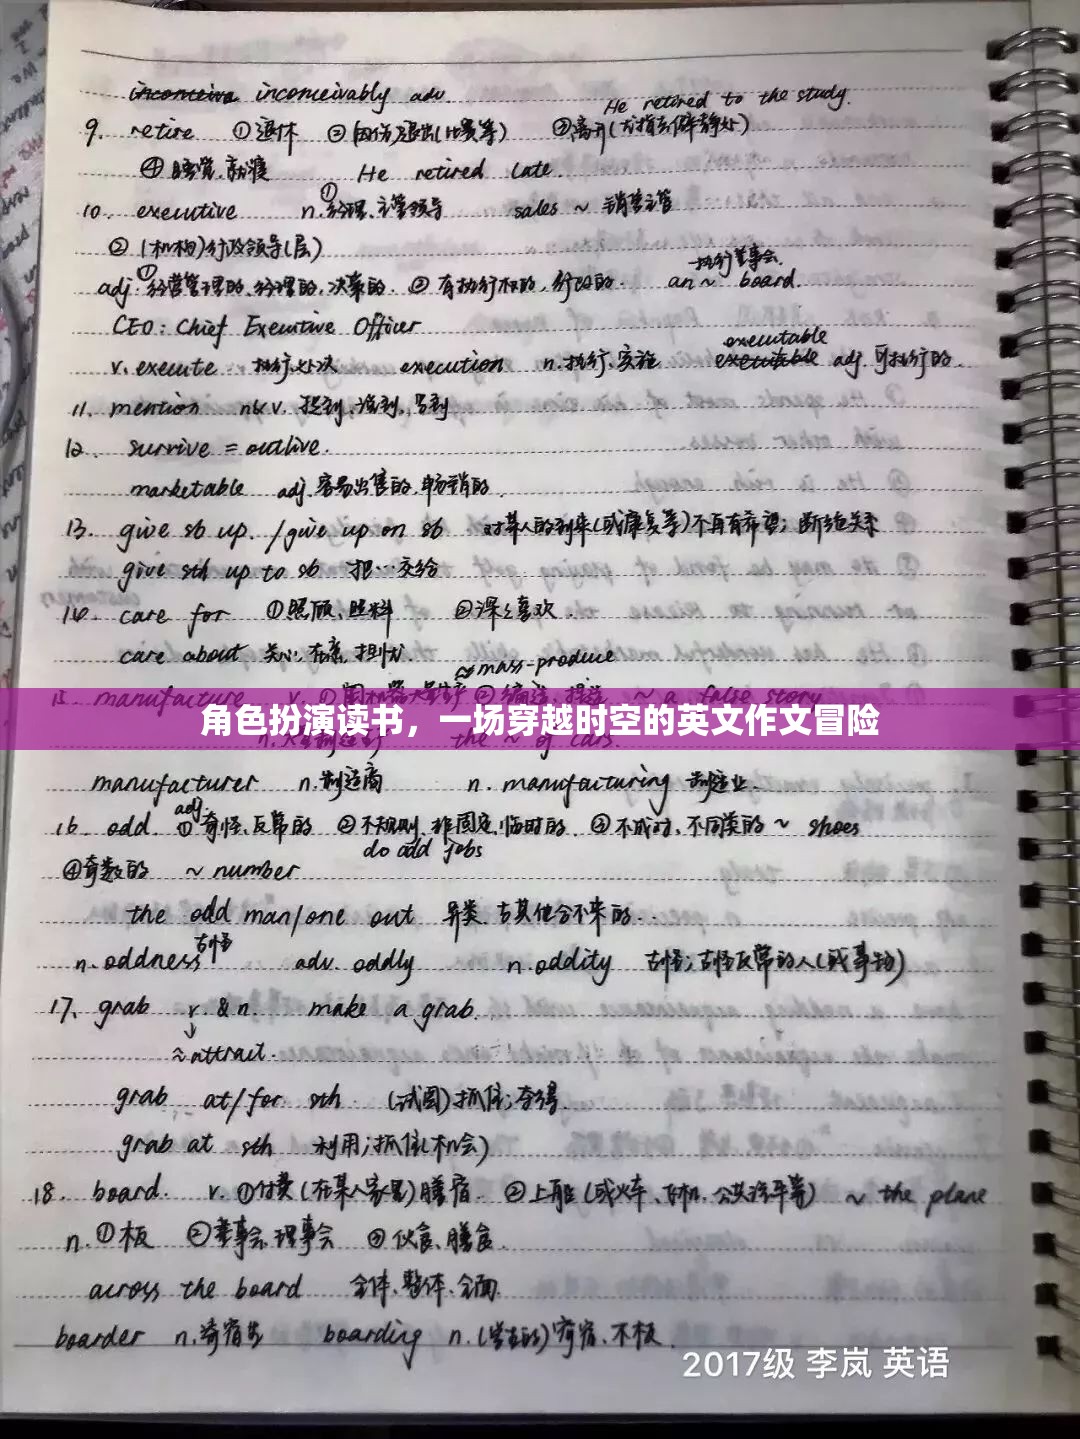 inconceivably adv.
He retired to the study.
9. retire ①退休 ②因伤退出(比赛等) ③离开(尤指去僻静处)
④睡觉,就寝 He retired late.
10. executive n.①经理,主管领导 sales ~ 销售主管
②(机构)行政领导(层)
执行董事会
adj.①经营管理的,经理的,决策的. ②有执行权的,行政的. an ~ board.
CEO: Chief Executive Officer
executable
v. execute 执行,处决 execution n.执行,实施 adj.可执行的.
11. mention n&v. 提到,谈到,写到
12. survive = outlive.
marketable adj.容易出售的,畅销的.
13. give sb up. /give up on sb 对某人的到来(或康复等)不再有希望; 断绝关系
give sth up to sb 把…交给
14. care for ①照顾,照料 ②深深喜欢.
care about 关心,在意,担忧.
≈mass-produce
15 manufacture v. ①用机器大量生产 ②编造,捏造 ~ a false story
角色扮演读书，一场穿越时空的英文作文冒险
the ~ of cars.
manufacturer n.制造商 n. manufacturing 制造业.
16. odd. adj. ①奇怪,反常的 ②不规则,非固定,临时的. ③不成对,不同类的 ~ shoes
do odd jobs
④奇数的 ~ number
the odd man/one out 异类,与其他合不来的..
n. oddness 古怪 adv. oddly n. oddity 古怪;古怪反常的人(或事物)
17. grab v. & n. make a grab.
≈attract.
grab at/for sth. (试图)抓住;夺得.
grab at sth 利用;抓住(机会)
18. board. v. ①付费(在某人家里)膳宿. ②上船(或火车、飞机、公共汽车等) ~ the plane
n.①板 ②董事会,理事会 ③伙食,膳食.
across the board 全体、整体、全面.
boarder n.寄宿生 boarding n.(学生的)寄宿、木板.
2017级 李岚 英语